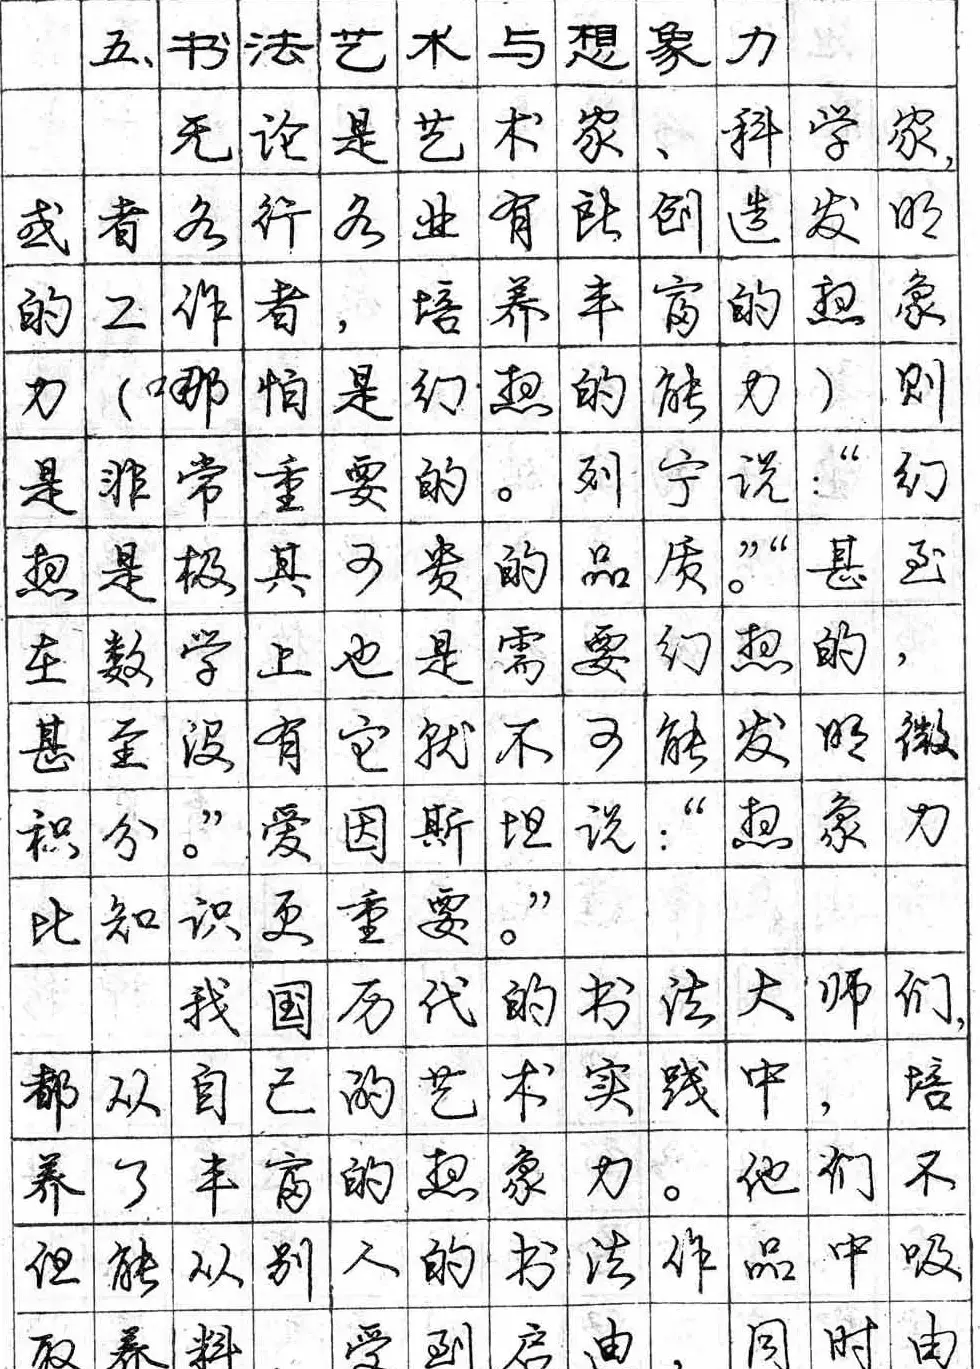 五、书法艺术与想象力
无论是艺术家、科学家,
或者各行各业有所创造发明
的工作者，培养丰富的想象
力(哪怕是幻想的能力)则
是非常重要的。列宁说:“幻
想是极其可贵的品质。”“甚至
在数学上也是需要幻想的，
甚至没有它就不可能发明微
积分。”爱因斯坦说:“想象力
比知识更重要。”
我国历代的书法大师们,
都从自己的艺术实践中，培
养了丰富的想象力。他们不
但能从别人的书法作品中吸
取养料 受到启 ，同时由